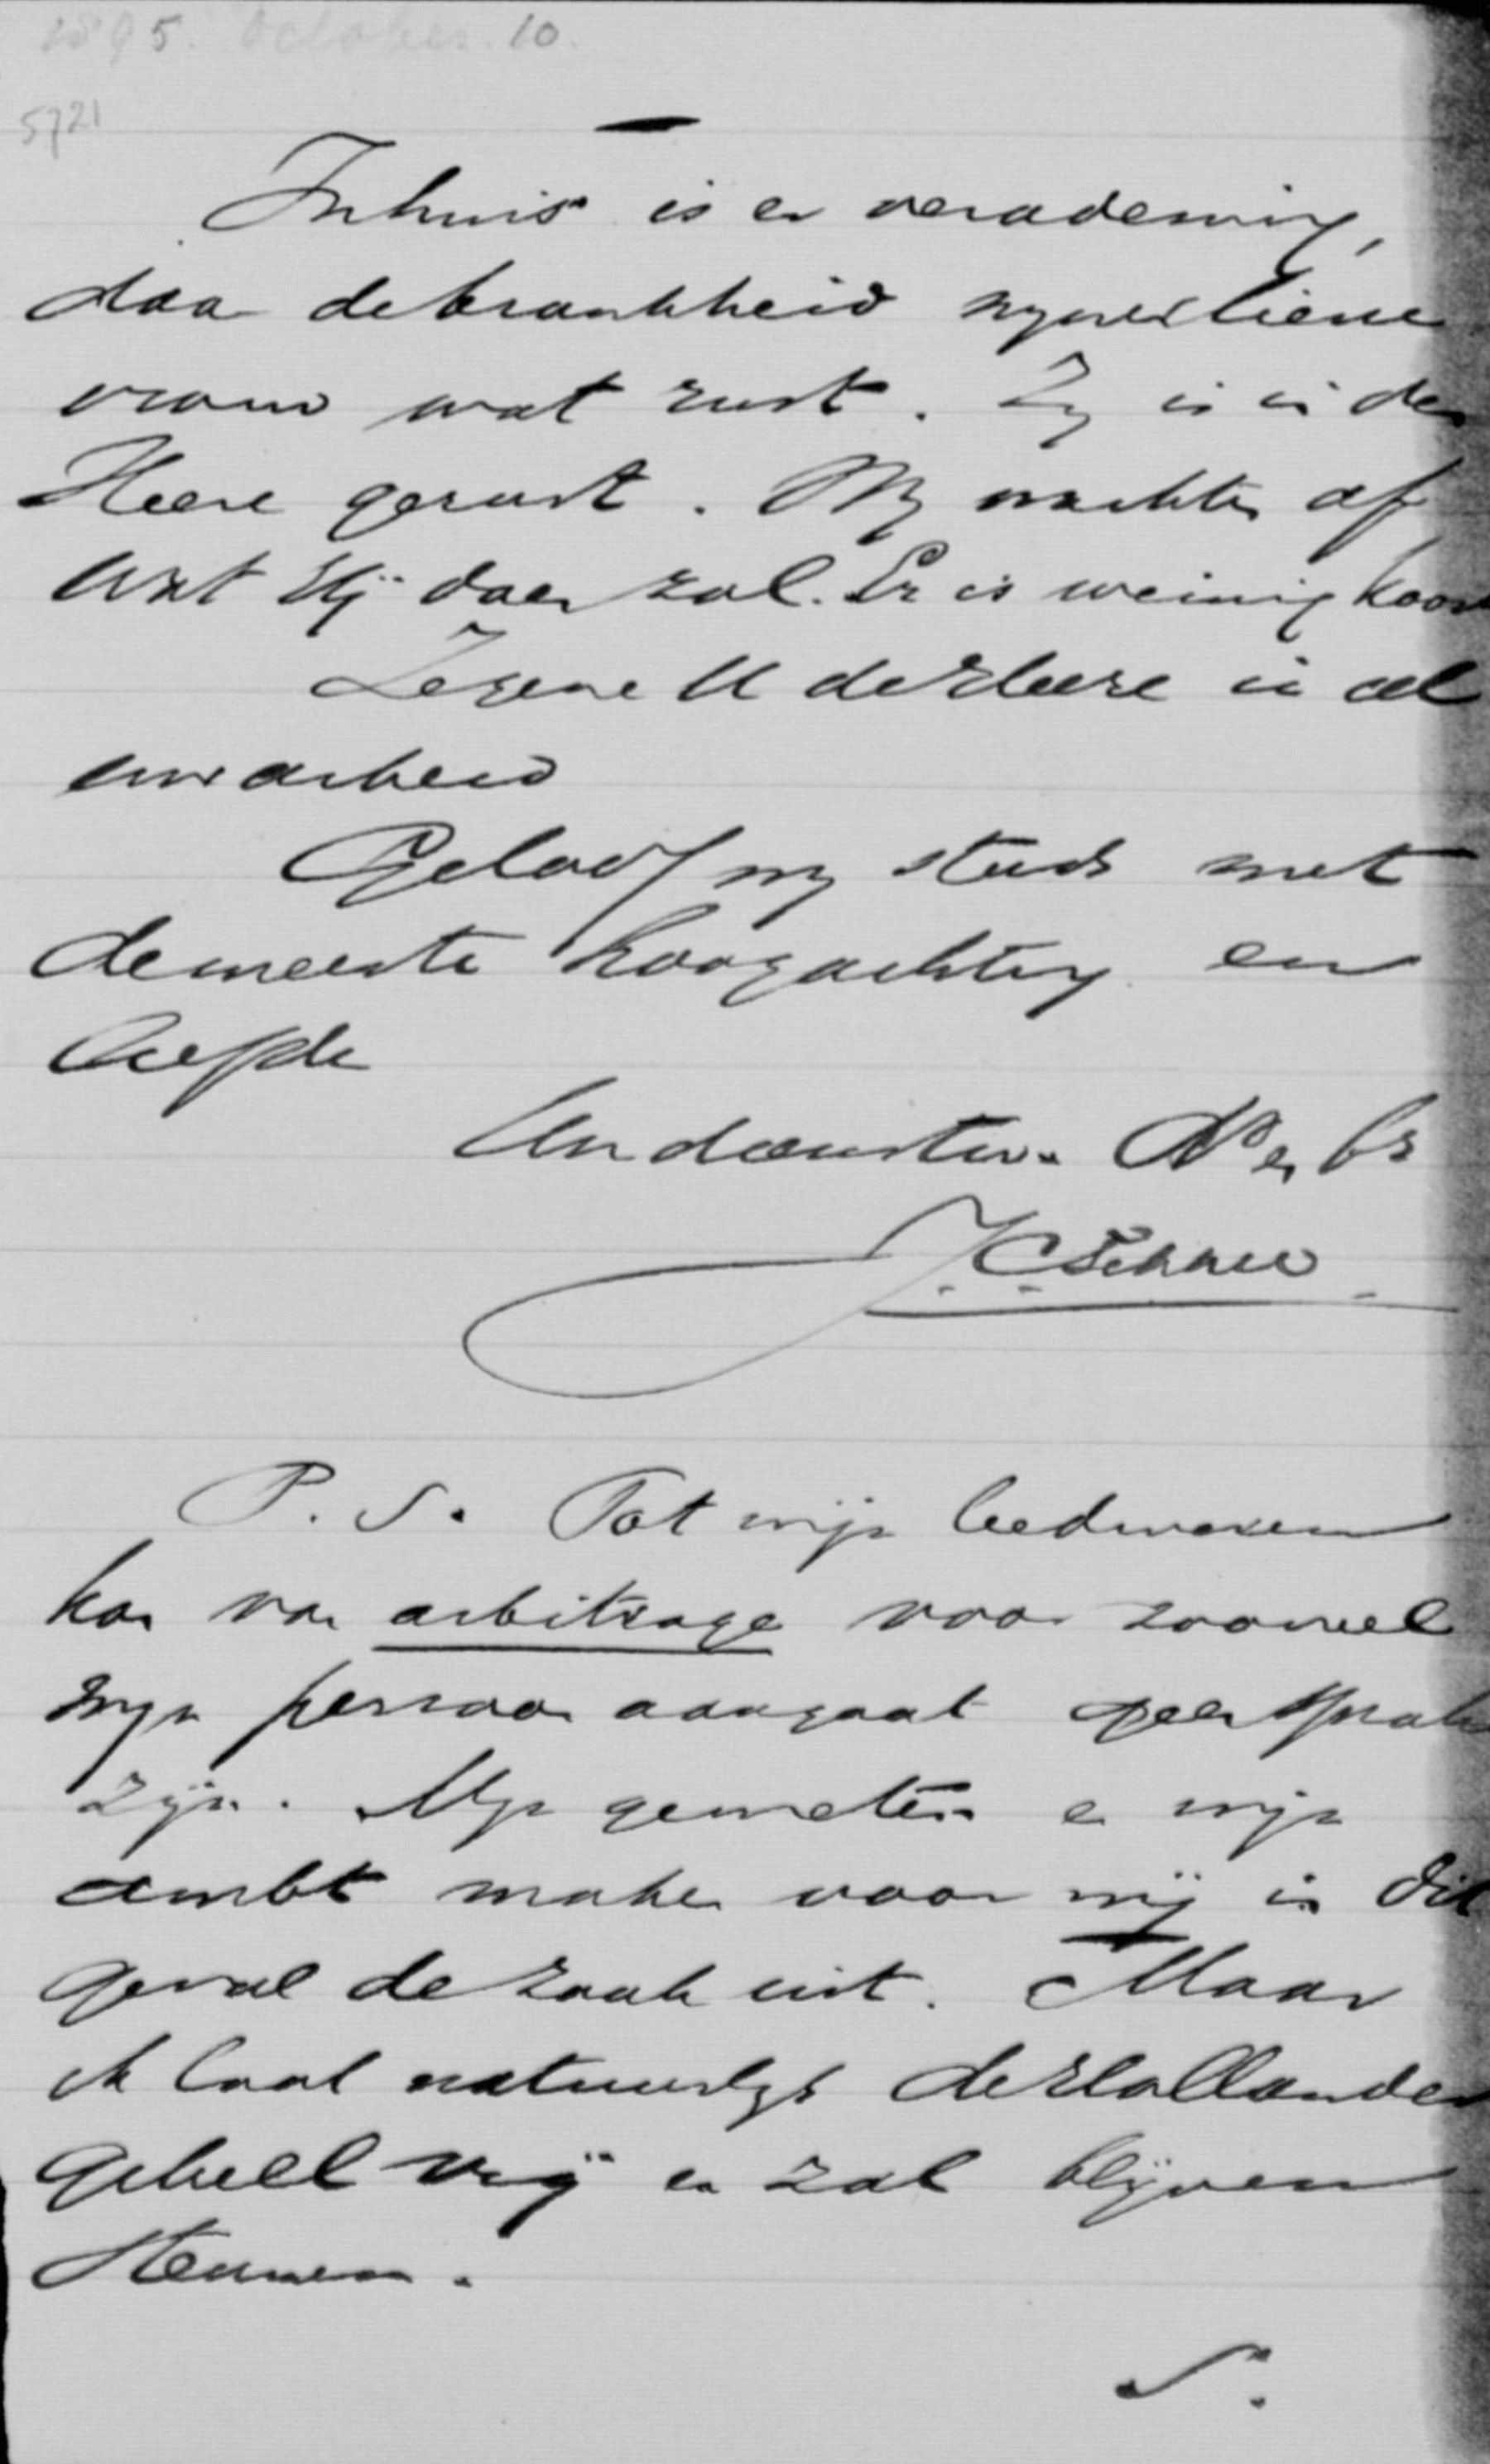 1895. October. 10.
5721
In huis is er verademing,
daar de krankheid mijner lieve
vrouw wat rust. Zij is in den
Heere gerust. Wij wachten af
wat Hij doen zal. Er is weinig hoop
Zegene U de Heere in al
uw arbeid
Geloof mij steeds met
de meeste hoogachting en
liefde
Uw dienstw. Dr en br
J. C. Sikkel
P. S. Tot mijn leedwezen
kan van arbitrage voor zooveel
mijn persoon aangaat geen sprake
zijn. Mijn geweten en mijn
ambt maken voor mij in dit
geval de zaak uit. Maar
ik laat natuurlijk de Hollander
geheel vrij en zal blijven
steunen.
S.